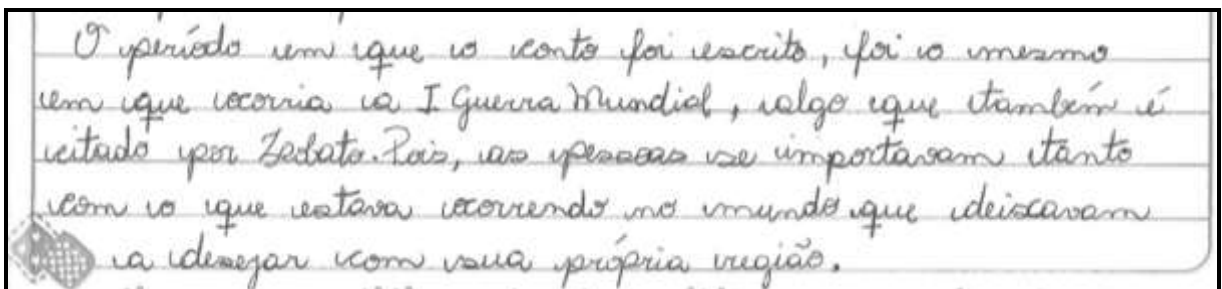 O período em que o conto foi escrito, foi o mesmo
em que ocorria a I Guerra Mundial, algo que também é
citado por Lobato. Pois, as pessoas se importavam tanto
com o que estava ocorrendo no mundo que deixavam
a desejar com sua própria região.